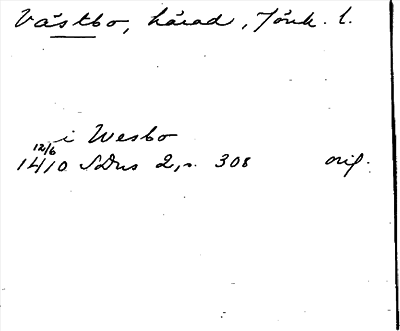 Västbo, härad, Jönk. l.
i Wesbo
12/6
1410 SDns 2, s. 308 orig.